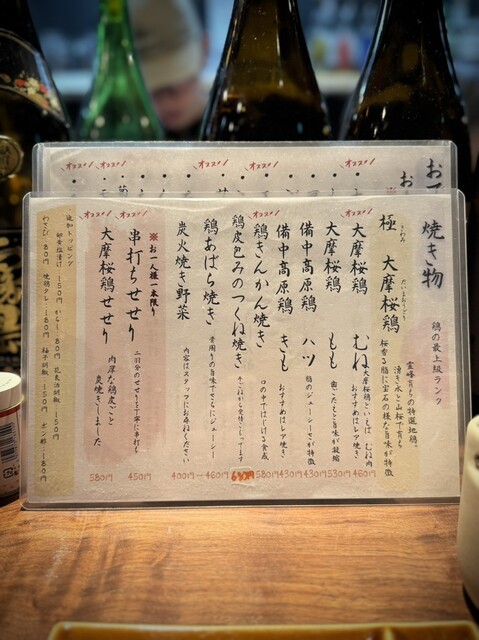 焼き物
鶏の最上級ランク
極 大摩桜鶏
霊峰育ちの特選地鶏。
湧き水と山桜で育ち
桜香る脂に宝石の様な旨味が特徴
オススメ!
大摩桜鶏 むね
大摩桜鶏といえば、むね肉
おすすめはレア焼き
460円
大摩桜鶏 もも
歯ごたえと旨味が凝縮
530円
備中高原鶏 ハツ
脂のジューシーさが特徴
430円
備中高原鶏 きも
おすすめはレア焼き
430円
オススメ!
鶏きんかん焼き
口の中ではじける食感
580円
オススメ!
鶏皮包みのつくね焼き
680円
鶏あばら焼き
骨周りの旨味でさらにジューシー
460円
炭火焼き野菜
内容はスタッフにお尋ねください
400円〜
※お一人様一本限り
オススメ!
串打ちせせり
二羽分のせせりを丁寧に串打ち
450円
オススメ!
大摩桜鶏せせり
肉厚な鶏皮ごと
炭焼きしました
580円
追加トッピング
卵黄塩漬け…150円
からし…80円
わさび…80円
焼鶏タレ…180円
柚子胡椒…150円
ポン酢…180円